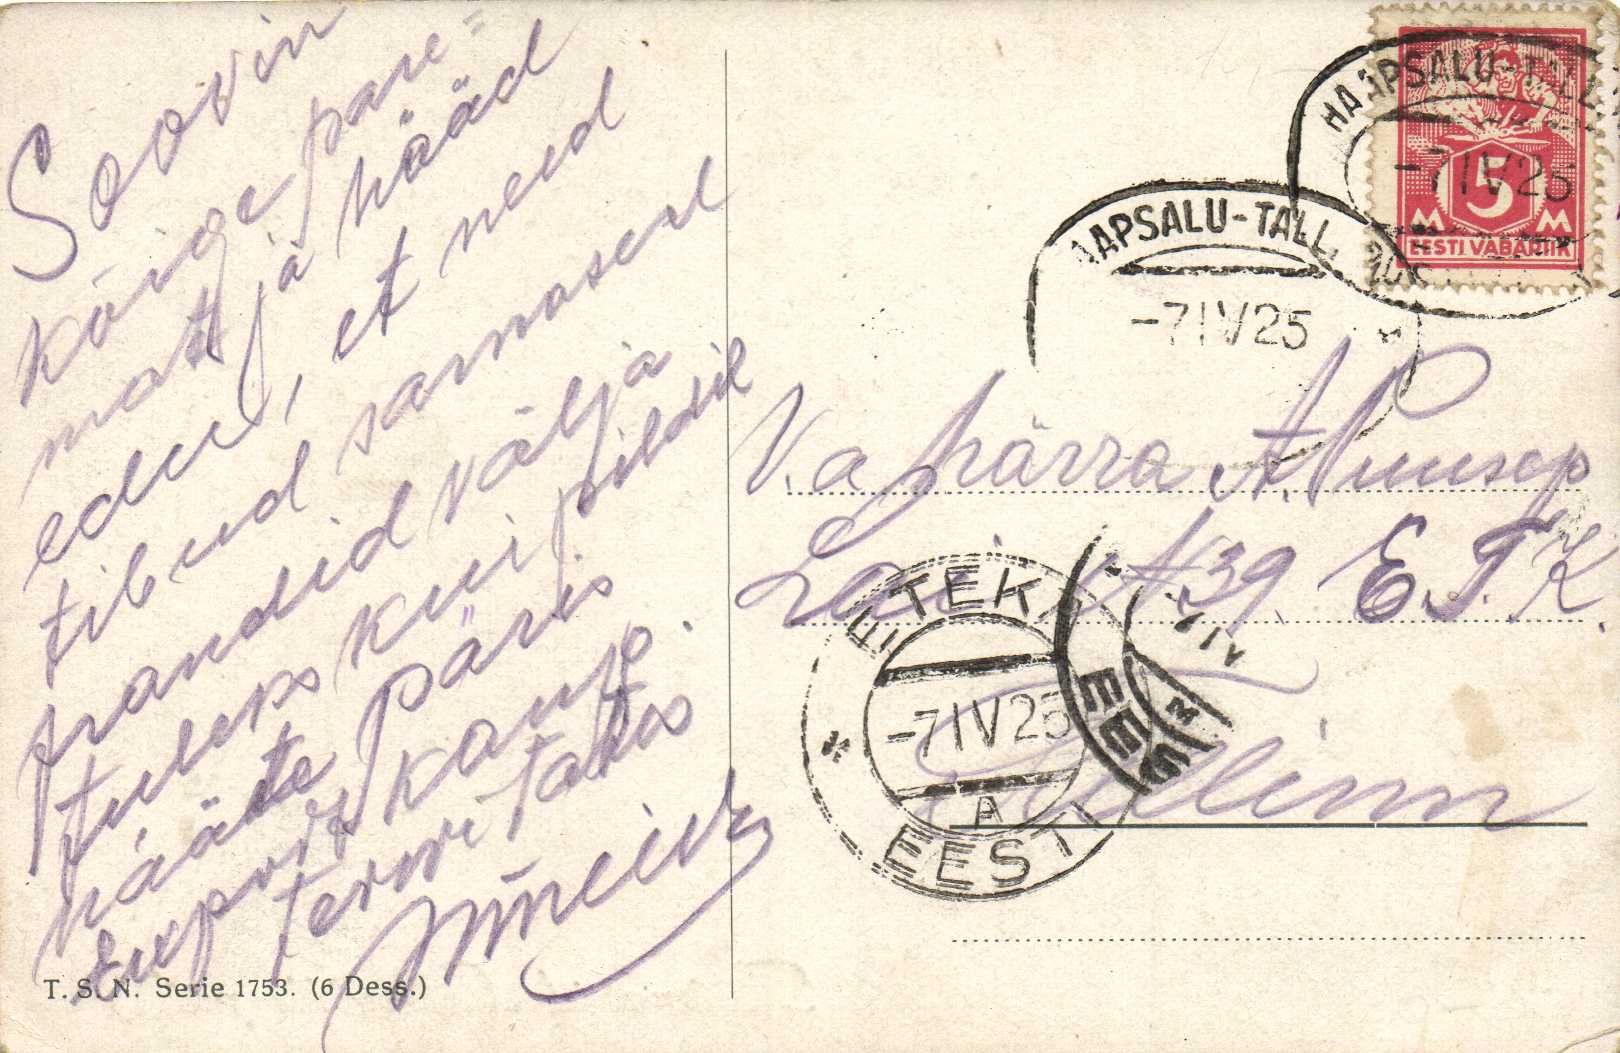 Soovin
kõige pare=
mat ja hääd
edu, et need
tibud sarnased
prandid välja
tuleks kui pildil
nääte Päris
kaup.
tervitates
T. S. N. Serie 1753. (6 Dess.)
HAAPSALU-TALL
-7 IV 25
5
M M
EESTI VABARIIK
AAPSALU-TALL.
-7 IV 25
V. a härra A. Nuusep
Lai № 39. E.T.K.
Tallinn
ETEKA
-7 IV 25
A
EESTI